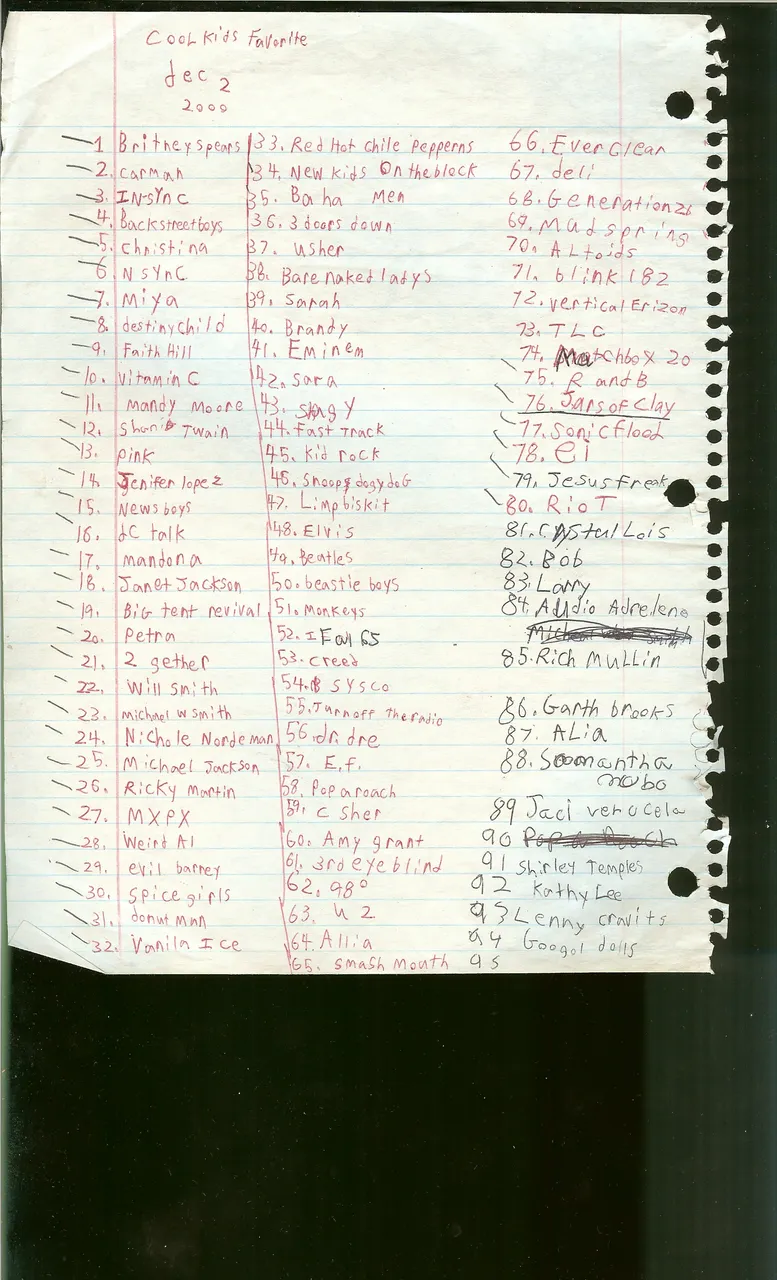 Cool Kids Favorite
dec 2
2000
1 Britney spears
2. carman
3. IN-SYNC
4. Backstreetboys
5. christina
6. N SYNC
7. Miya
8. destinychild
9. Faith Hill
10. Vitamin C
11. Mandy Moore
12. Shania Twain
13. pink
14. Jenifer lopez
15. Newsboys
16. dC talk
17. mandona
18. Janet Jackson
19. Big tent revival
20. Petra
21. 2 gether
22. Will Smith
23. michael w smith
24. Nichole Nordeman
25. Michael Jackson
26. Ricky Martin
27. MXPX
28. Weird Al
29. evil barney
30. spice girls
31. donut man
32. Vanila Ice
33. Red Hot chile Pepperns
34. New kids On the block
35. Ba ha men
36. 3 doors down
37. usher
38. Bare naked ladys
39. Sarah
40. Brandy
41. Eminem
42. Sara
43. shagy
44. Fast Track
45. Kid rock
46. Snoopy dogy doG
47. Limp biskit
48. Elvis
49. Beatles
50. beastie boys
51. Monkeys
52. I Eal 65
53. creed
54. SYSCO
55. Turn off the radio
56. dr. dre
57. E.F.
58. Pop a roach
59. C Sher
60. Amy grant
61. 3rd eye blind
62. 98°
63. U 2
64. Allia
65. smash mouth
66. Ever Clear
67. deli
68. Generation21
69. Mud spring
70. ALtoids
71. blink 182
72. vertical Erizon
73. TLC
74. Matchbox 20
75. R and B
76. Jars of Clay
77. Sonicflood
78. ei
79. Jesus freak
80. RioT
81. Crystal Lois
82. Bob
83. Larry
84. Audio Adrelene
85. Rich Mullin
86. Garth brooks
87. ALia
88. Soomantha
mobo
89 Jaci verucela
90
91 Shirley Temples
92 Kathy Lee
93 Lenny cravits
94 Googol dolls
95